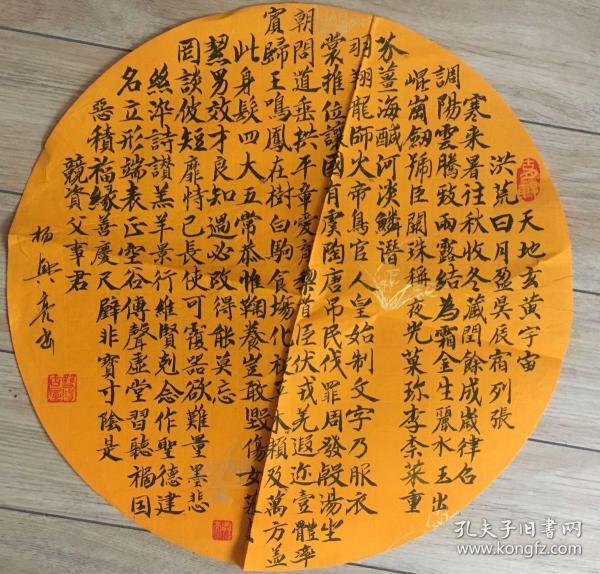 天地玄黄宇宙
洪荒日月盈昃辰宿列張
寒来暑往秋收冬藏閏餘成歲律吕
調陽雲騰致雨露結為霜金生麗水玉出
崐崗劍號臣闕珠稱夜光菓珍李柰菜重
芥薑海鹹河淡鱗潛
羽翔龍師火帝鳥官人皇始制文字乃服衣
裳推位讓國有虞陶唐吊民伐罪周發殷湯坐
朝問道垂拱平章愛育黎首臣伏戎羌遐迩壹體率
賓歸王鳴鳳在樹白駒食場化被木賴及萬方蓋
此身髮四大五常恭惟鞠養豈敢毀傷女慕
絜男效才良知過必改得能莫忘
罔談彼短靡恃己長使可覆器欲難量墨悲
絲染詩讚羔羊景行維賢剋念作聖德建
名立形端表正空谷傳聲虛堂習聽禍因
惡積福緣善慶尺璧非寶寸陰是
競資父事君
杨興亮书
孔夫子旧书网
www.kongfz.com